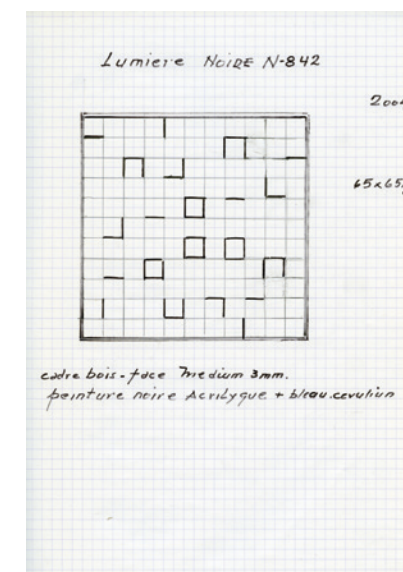 Lumiere NoiRE N-842
200
65x65
cadre bois - face Medium 3mm.
peinture noire Acrilyque +